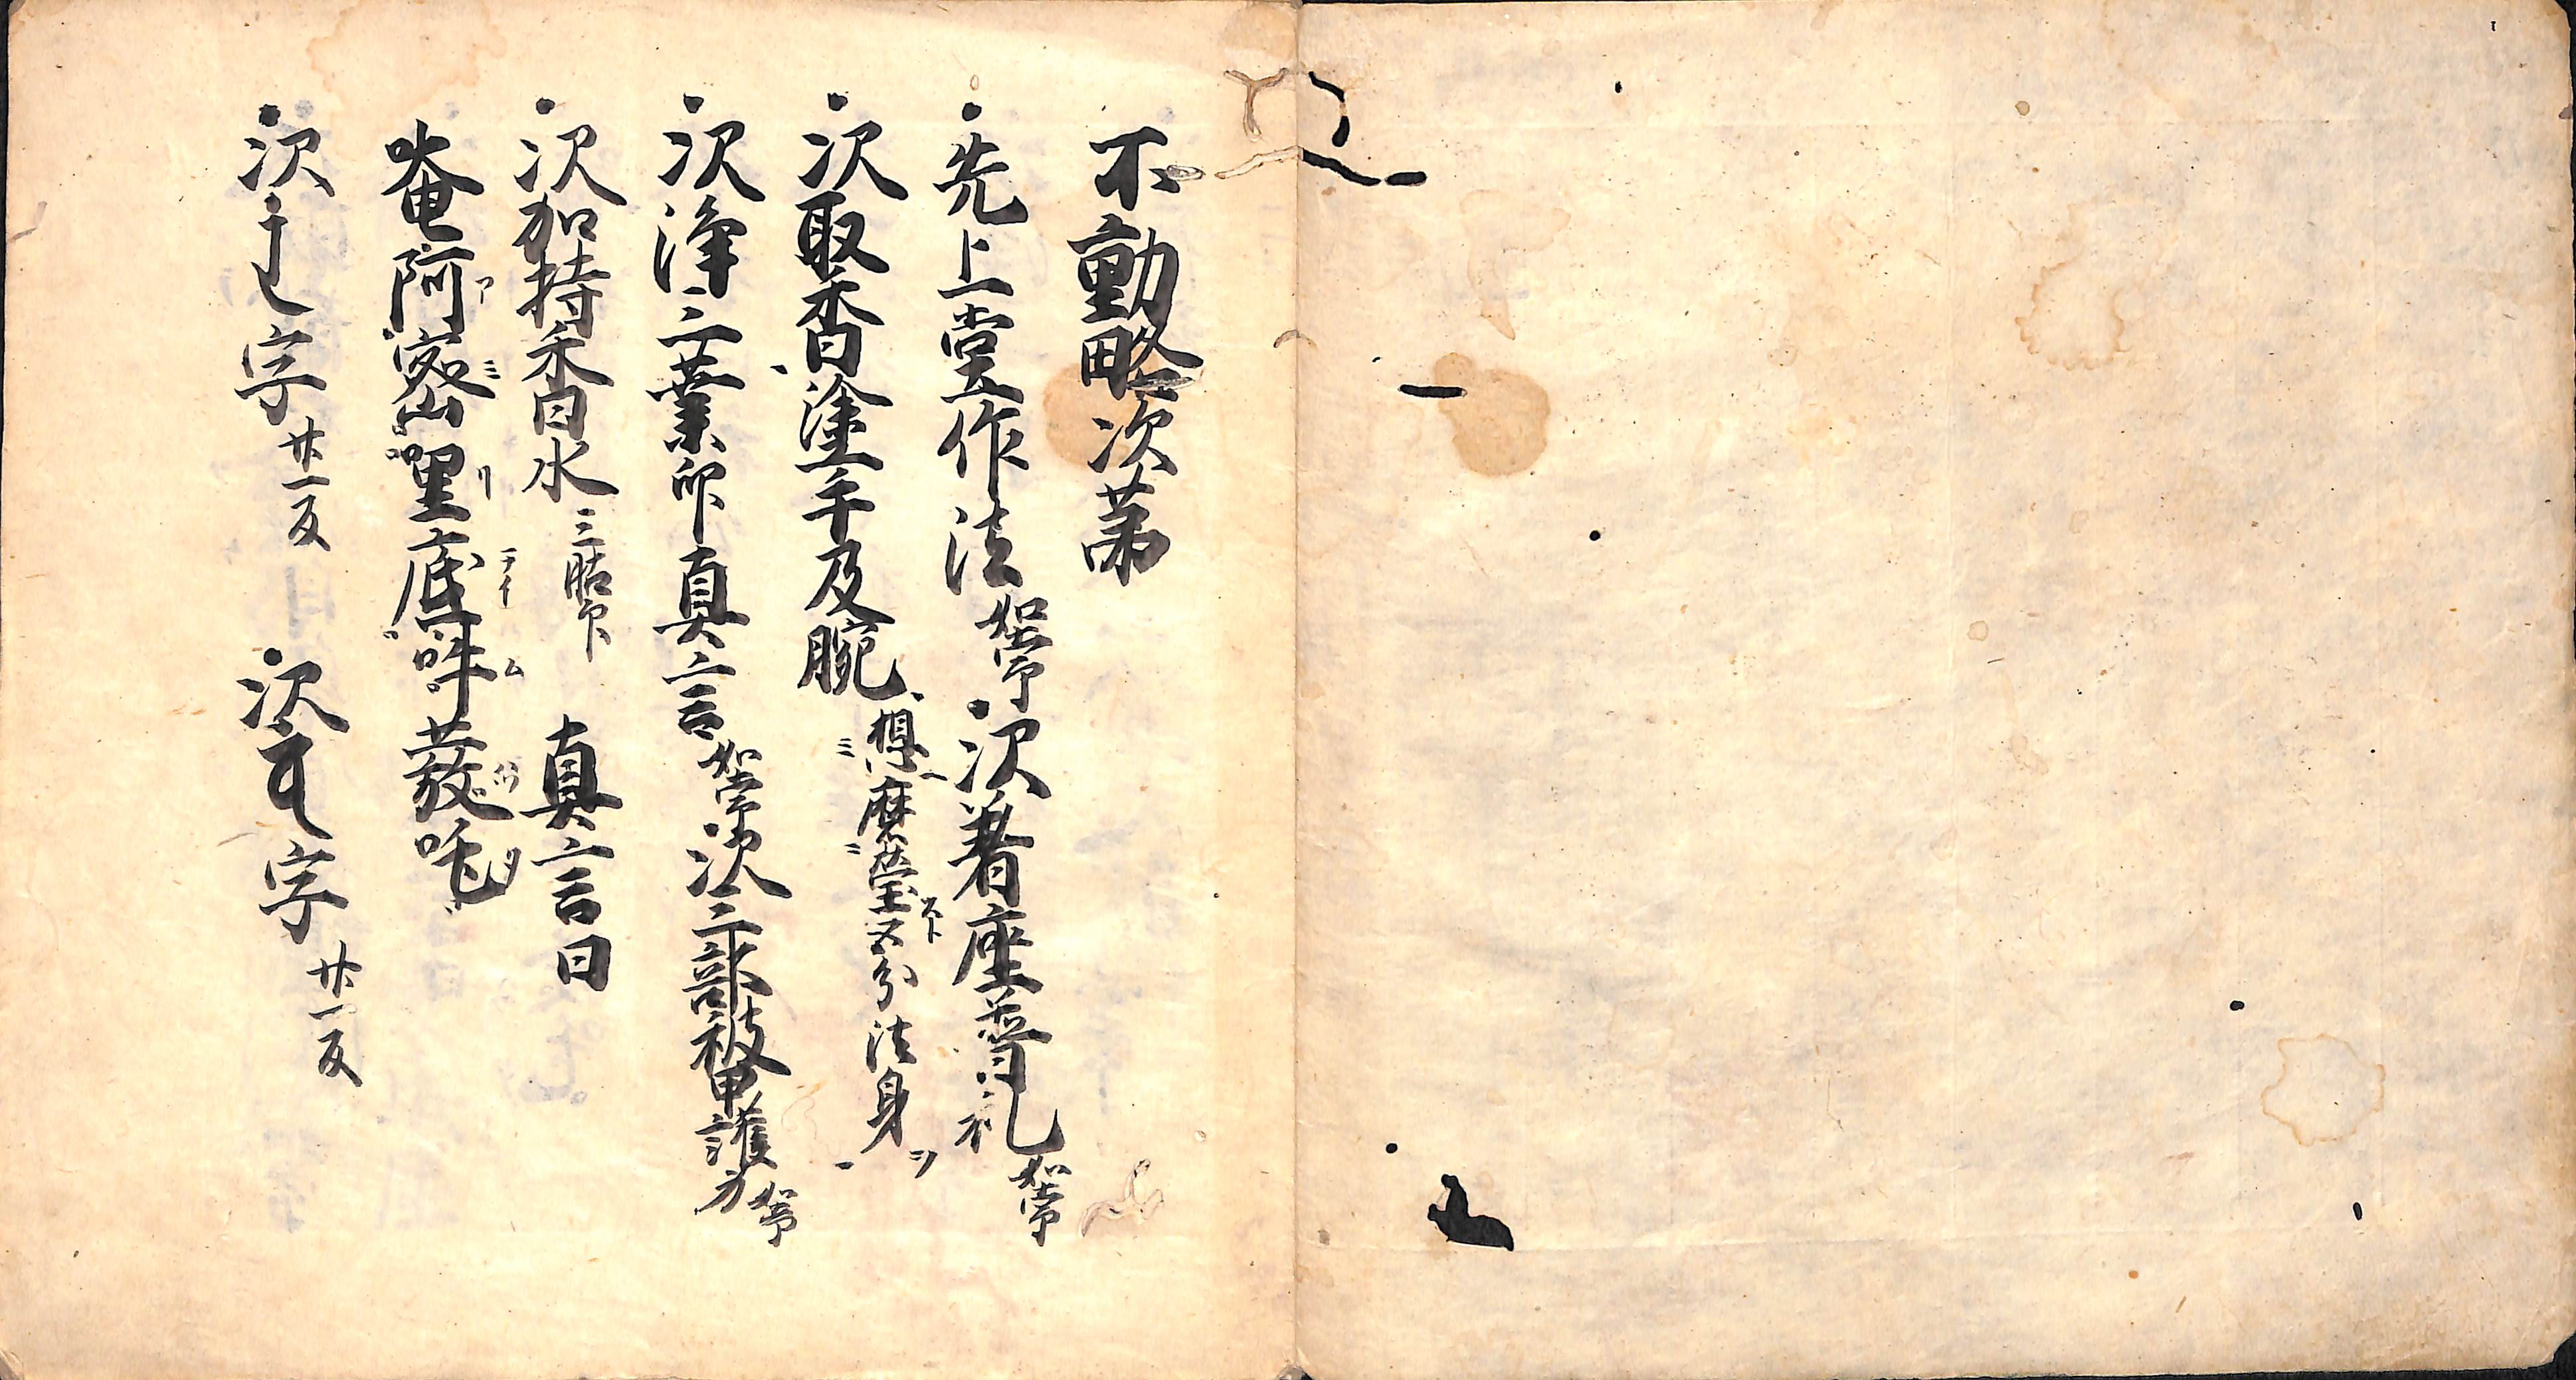 不動略次第
先上堂作法如常次着座普礼如常
次取香塗手及腕想磨瑩五分法身
次浄三業印真言如常次三部被甲護身如常
次加持香水三鈷印 真言曰
唵阿密哩底吽發吒
次字廿一反 次字廿一反